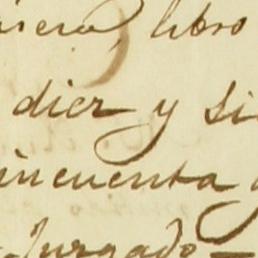 libro
diez y si
incuenta
Juzgado